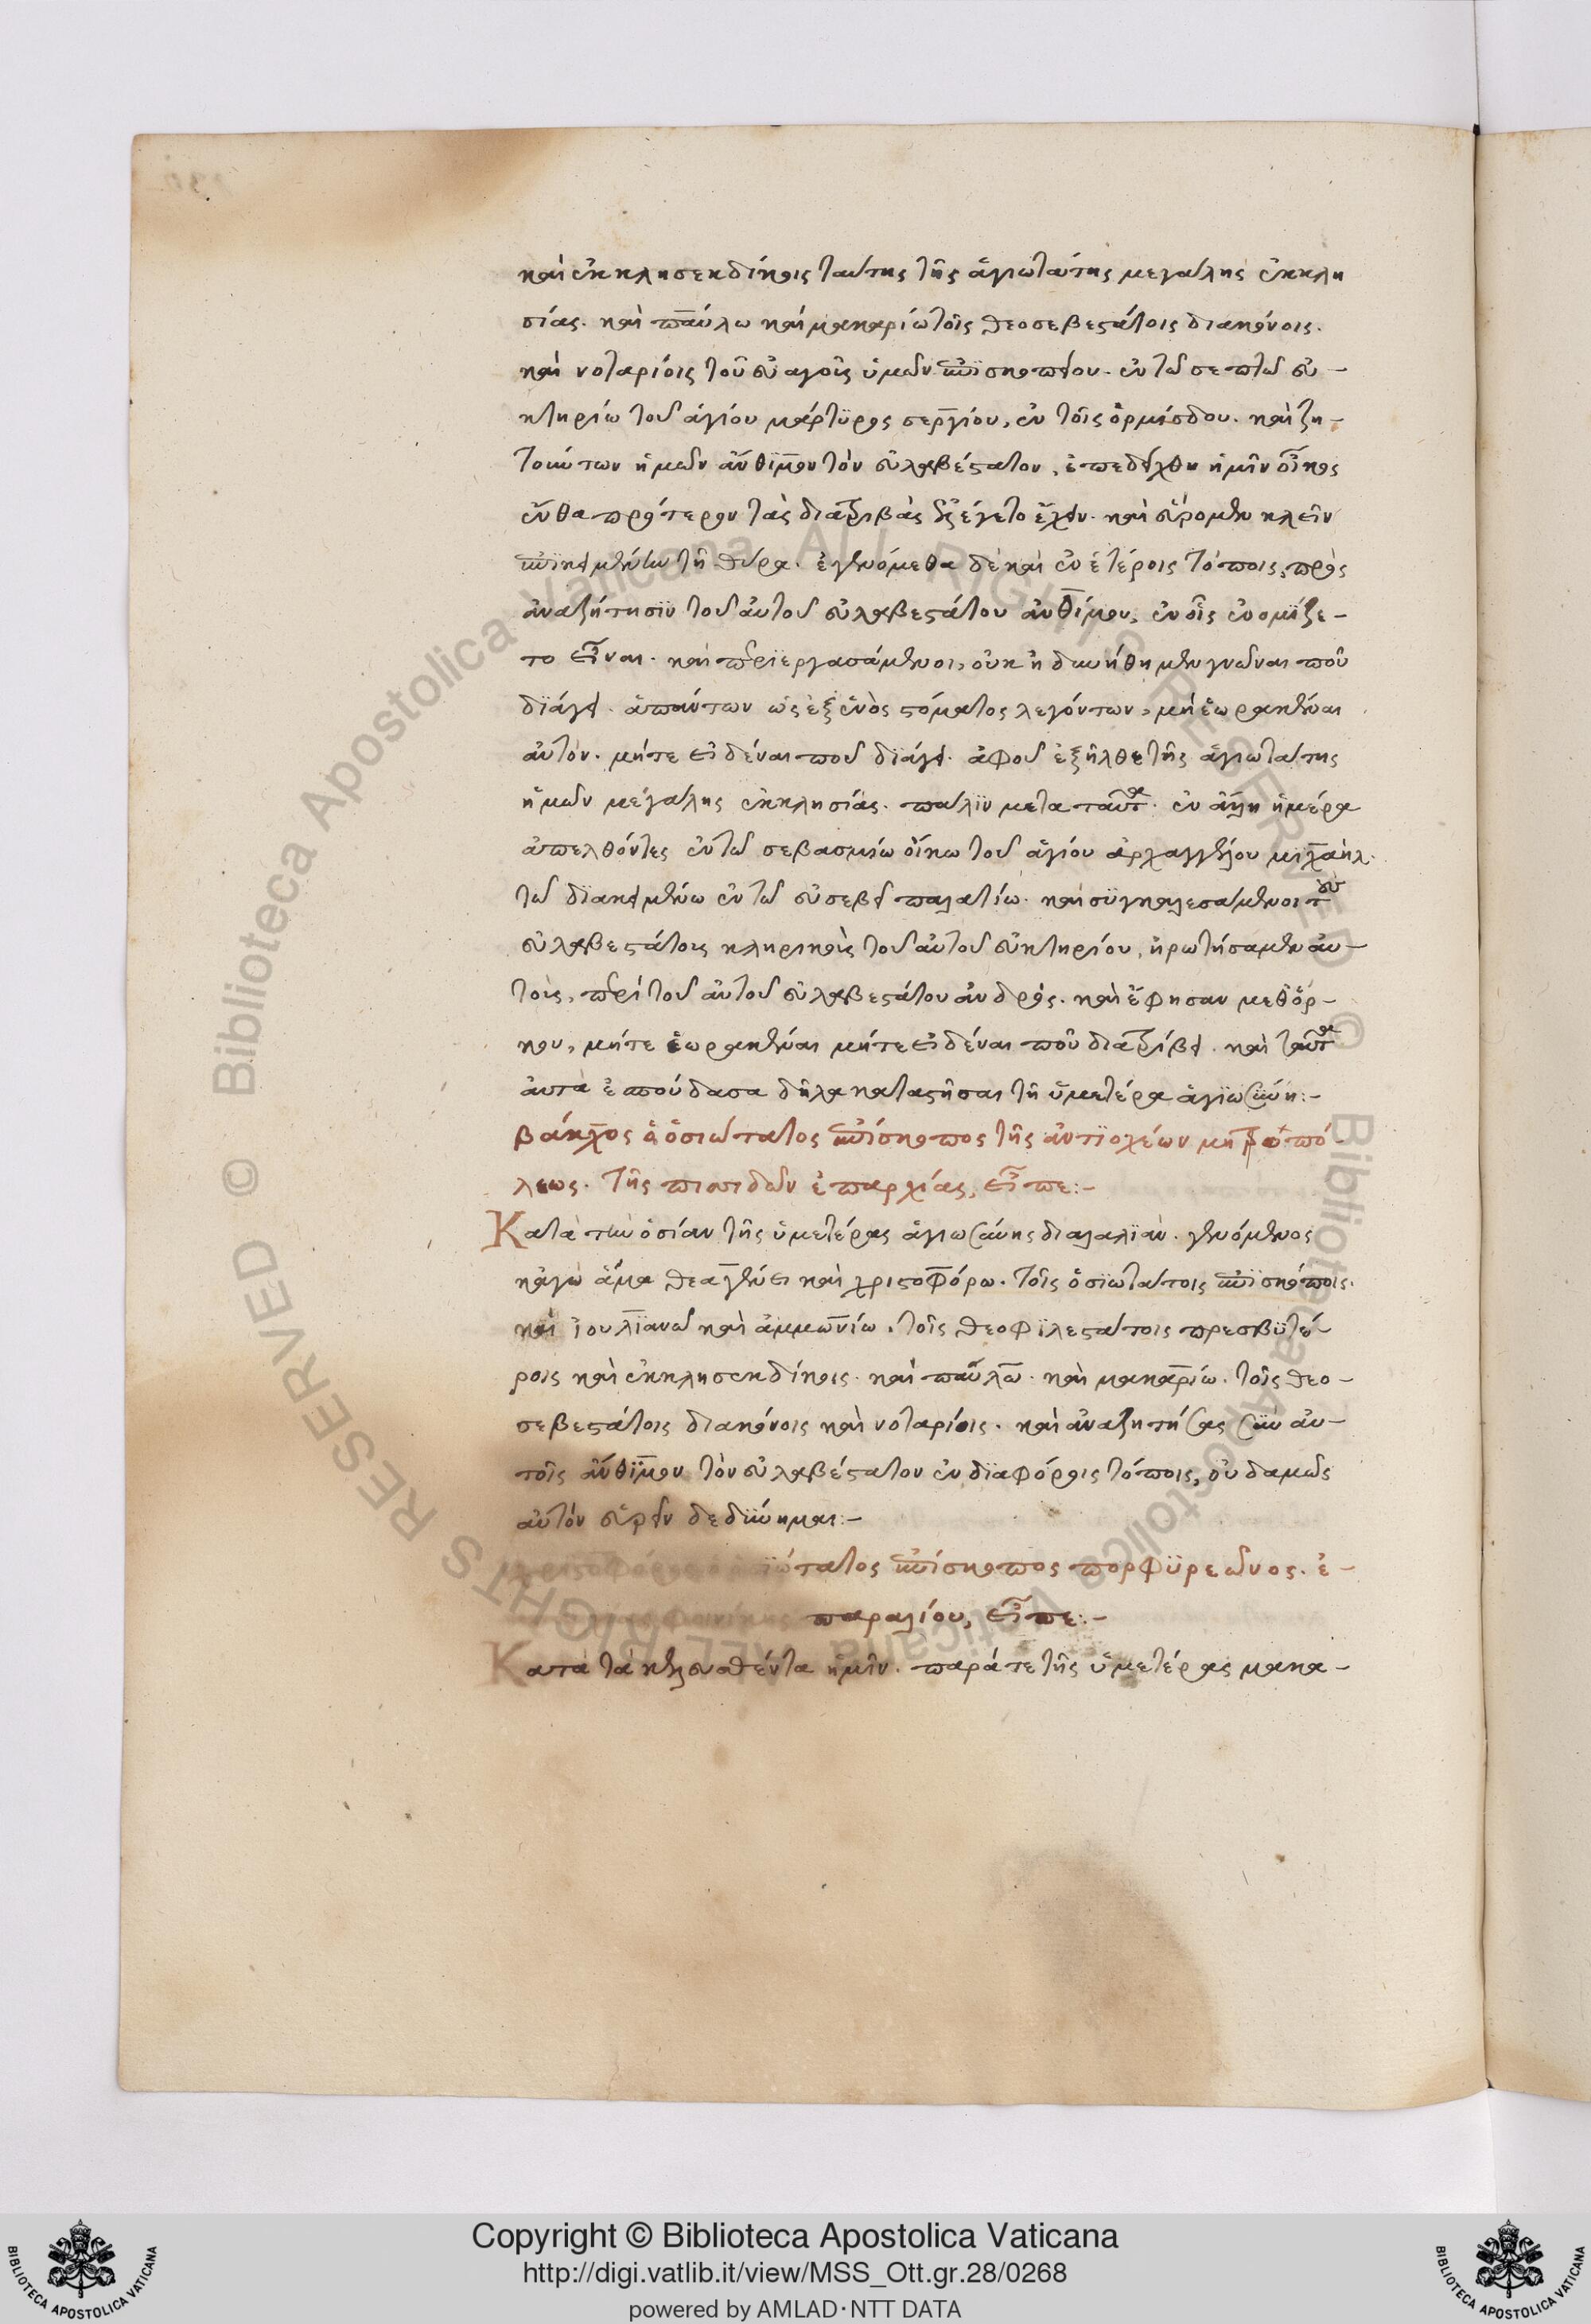 καὶ ἐκκλησεκδίκοις ταύτης τῆς ἁγιωτάτης μεγάλης ἐκκλη
σίας. καὶ παύλω καὶ μακαρίω τοῖς θεοσεβεστάτοις διακόνοις.
καὶ νοταρίοις τοῦ εὐαγοῦς ὑμῶν ἐπισκοπείου. ἐν τῶ σεπτῶ εὐ-
κτηρίω τοῦ ἁγίου μάρτϋρος σεργίου, ἐν τοῖς ὁρμίσδου. καὶ ζη-
τούντων ἡμῶν ἄνθιμον τὸν εὐλαβέστατον, ἐπεδείχθη ἡμῖν οἶκος
ἔνθα πρότερον τὰς διατριβὰς ἐλέγετο ἔχειν. καὶ εὕρομεν κλεῖν
ἐπικειμένην τῆ θύρα. ἐγενόμεθα δὲ καὶ ἐν ἑτέροις τόποις, πρὸς
ἀναζήτησϊν τοῦ αὐτοῦ εὐλαβεστάτου ἀνθίμου, ἐν οἷς ἐνομίζε-
το εἶναι. καὶ περϊεργασάμενοι, οὐκ ἠδυνήθημεν γνῶναι ποῦ
δϊάγει. ἁπάντων ὡς ἐξ ἑνὸς στόματος λεγόντων, μὴ ἑωρακέναι
αὐτὸν. μήτε εἰδέναι ποῦ δϊάγει. ἀφοῦ ἐξῆλθε τῆς ἁγιωτάτης
ἡμῶν μεγάλης ἐκκλησίας. πάλϊν μετα ταῦτα. ἐν ἄλλη ἡμέρα
ἀπελθόντες ἐν τῶ σεβασμίω οἴκω τοῦ ἁγίου ἀρχαγγέλου μιχαὴλ.
τῶ δϊακειμένω ἐν τῶ εὐσεβεῖ παλατίω. καὶ συγκαλεσάμενοι τοὺς
εὐλαβεστάτους κληρικοὺς τοῦ αὐτοῦ εὐκτηρίου, ἠρωτήσαμεν αὐ-
τοὺς, περὶ τοῦ αὐτοῦ εὐλαβεστάτου ἀνδρός. καὶ ἔφησαν μεθ' ὅρ-
κου, μήτε ἑωρακέναι μήτε εἰδέναι ποῦ διατρίβει. καὶ ταῦτα
αυτὰ ἐσπούδασα δῆλα καταστῆσαι τῆ ὑμετέρα ἁγϊωσύνη:-
βάκχος ὁ ὁσιώτατος ἐπίσκοπος τῆς ἀντϊοχέων μητροπό-
λεως. τῆς πισιδῶν ἐπαρχίας, εἶπε:-
Κατὰ τὴν ὁσίαν τῆς ὑμετέρας ἁγιωσύνης διαλαλϊὰν. γενόμενος
κἀγὼ ἅμα θεαγένει καὶ χριστοφόρω. τοῖς ὁσϊωτάτοις ἐπϊσκόποις.
καὶ ἰουλϊανῶ καὶ ἀμμωνίω. τοῖς θεοφϊλεστάτοις πρεσβϋτέ-
ροις καὶ ἐκκλησεκδίκοις. καὶ παύλω. καὶ μακαρίω. τοῖς θεο-
σεβεστάτοις διακόνοις καὶ νοταρίοις. καὶ ἀναζητήσας σὺν αὐ-
τοῖς ἄνθϊμον τὸν εὐλαβέστατον ἐν δϊαφόροις τόποις, οὐδαμῶς
αὐτὸν εὑρεῖν δεδύνημαι:-
χριστοφόρος ὁ ὁσϊώτατος ἐπίσκοπος πορφϋρεῶνος. ἐ-
παραλίου, εἶπε:-
Κατὰ τὰ κελευσθέντα ἡμῖν. παρά τε τῆς ὑμετέρας μακα-
Copyright © Biblioteca Apostolica Vaticana
http://digi.vatlib.it/view/MSS_Ott.gr.28/0268
powered by AMLAD·NTT DATA